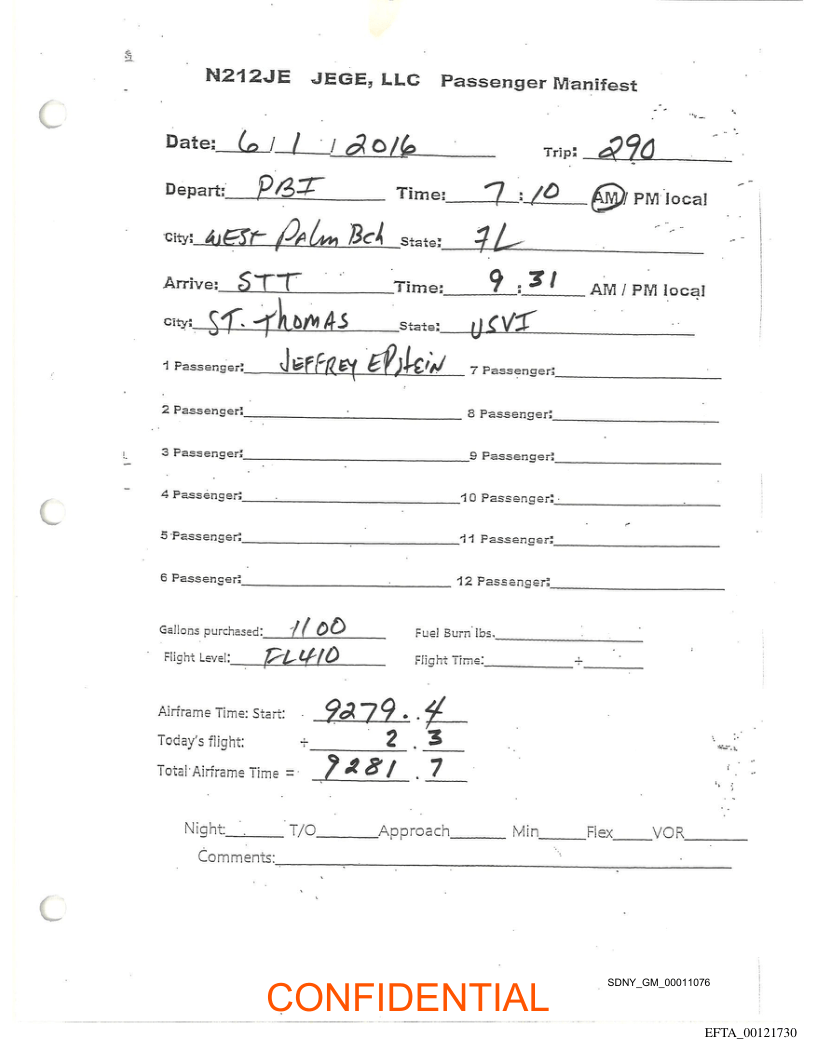 N212JE JEGE, LLC Passenger Manifest
Date: 6 / 1 / 2016 Trip: 290
Depart: PBI Time: 7 : 10 AM / PM local
City: WEST PALM BCH State: FL
Arrive: STT Time: 9 : 31 AM / PM local
City: ST. THOMAS State: USVI
1 Passenger: JEFFREY EPSTEIN 7 Passenger:
2 Passenger: 8 Passenger:
3 Passenger: 9 Passenger:
4 Passenger: 10 Passenger:
5 Passenger: 11 Passenger:
6 Passenger: 12 Passenger:
Gallons purchased: 1100 Fuel Burn lbs.
Flight Level: FL410 Flight Time: +
Airframe Time: Start: 9279 . 4
Today's flight: + 2 . 3
Total Airframe Time = 9281 . 7
Night: T/O Approach Min Flex VOR
Comments:
SDNY_GM_00011076
CONFIDENTIAL
EFTA_00121730